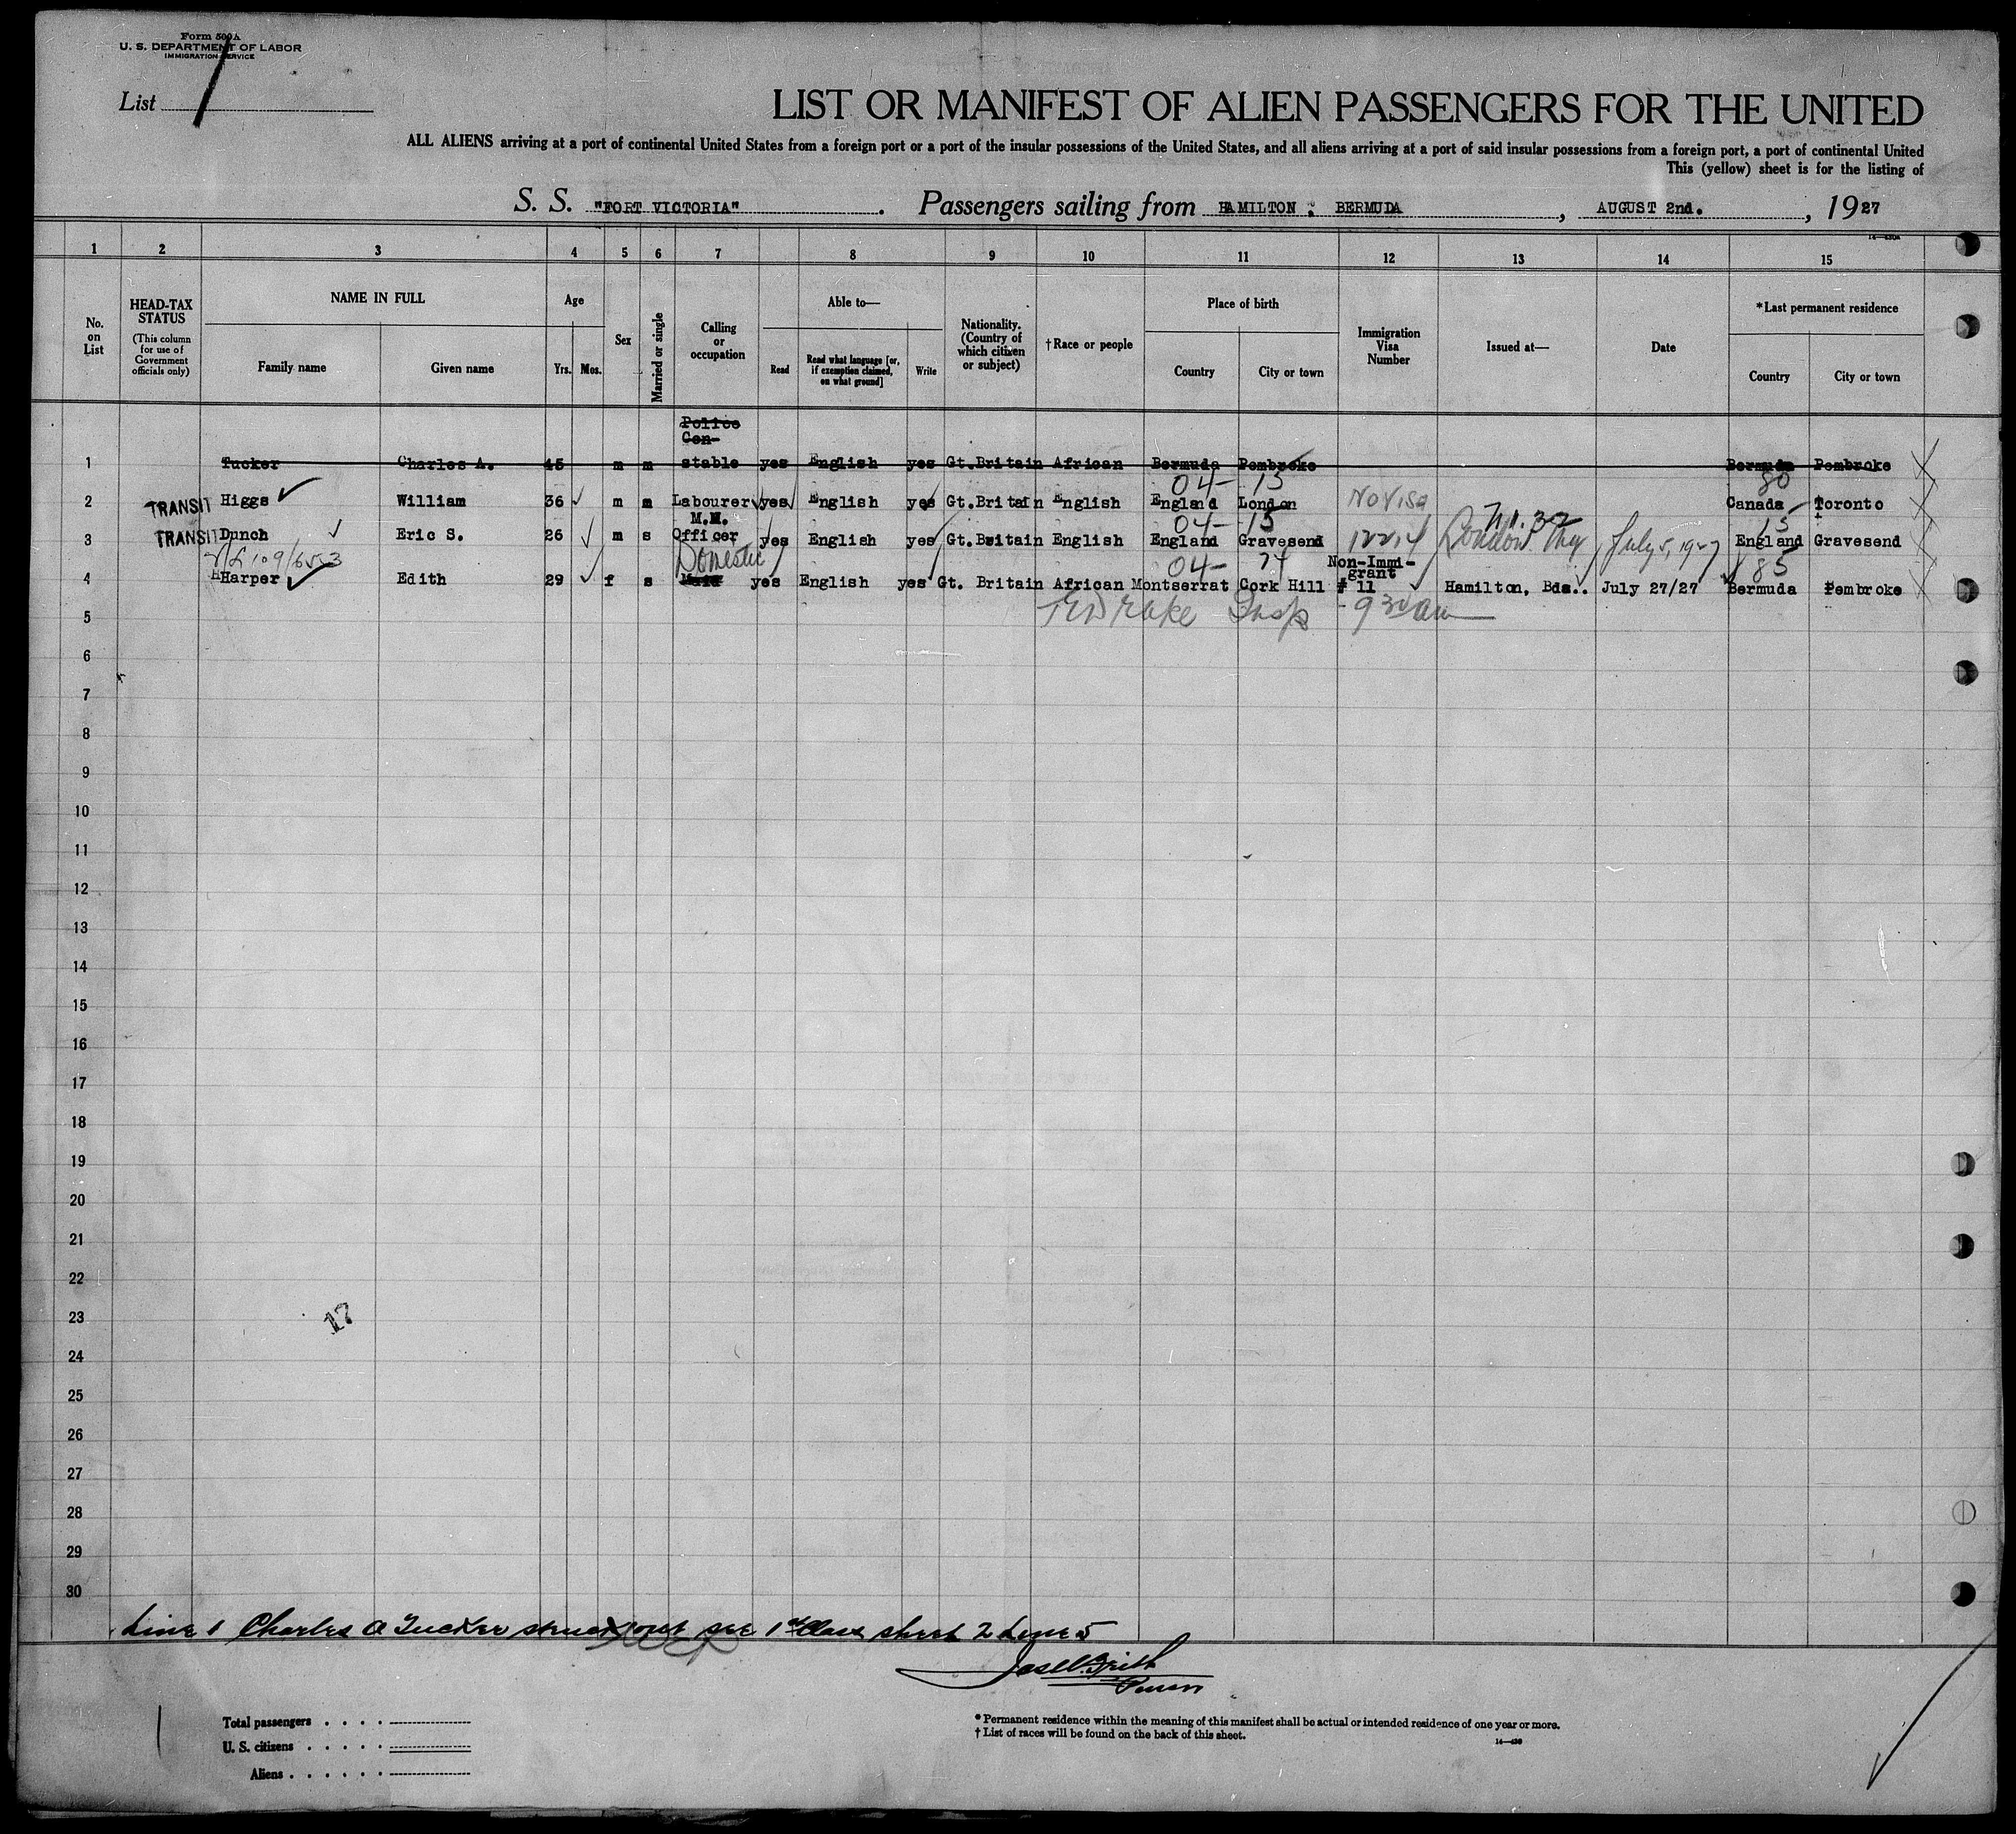 Form 500A
U. S. DEPARTMENT OF LABOR
IMMIGRATION SERVICE
List
LIST OR MANIFEST OF ALIEN PASSENGERS FOR THE UNITED
ALL ALIENS arriving at a port of continental United States from a foreign port or a port of the insular possessions of the United States, and all aliens arriving at a port of said insular possessions from a foreign port, a port of continental United
This (yellow) sheet is for the listing of
S. S. "FORT VICTORIA". Passengers sailing from HAMILTON : BERMUDA, AUGUST 2nd., 1927
1 2 3 4 5 6 7 8 9 10 11 12 13 14 15
No. on List
HEAD-TAX STATUS (This column for use of Government officials only)
NAME IN FULL Family name Given name
Age Yrs. Mos.
Sex
Married or single
Calling or occupation
Able to— Read Read what language [or, if exemption claimed, on what ground] Write
Nationality. (Country of which citizen or subject)
†Race or people
Place of birth Country City or town
Immigration Visa Number
Issued at—
Date
*Last permanent residence Country City or town
Police
Con-
1 Tucker Charles A. 45 m m stable yes English yes Gt.Britain African Bermuda Pembroke Bermuda Pembroke
04- 15 80
2 TRANSIT Higgs William 36 m m Labourer yes English yes Gt.Britain English England London No Visa Canada Toronto
M.M. 04- 15 15
3 TRANSIT Dunch Eric S. 26 m s Officer yes English yes Gt.Britain English England Gravesend London July 5, 1927 England Gravesend
Domestic 04- 74 Non-Immi-
grant 85
4 Harper Edith 29 f s Maid yes English yes Gt. Britain African Montserrat Cork Hill # 11 Hamilton, Bda.. July 27/27 Bermuda Pembroke
Drake Insp - 9 30 am
5
6
7
8
9
10
11
12
13
14
15
16
17
18
19
20
21
22
23
17
24
25
26
27
28
29
30
Line 1 Charles A Tucker struck out see 1st Class sheet 2 Line 5
Total passengers
U. S. citizens
Aliens
* Permanent residence within the meaning of this manifest shall be actual or intended residence of one year or more.
† List of races will be found on the back of this sheet.